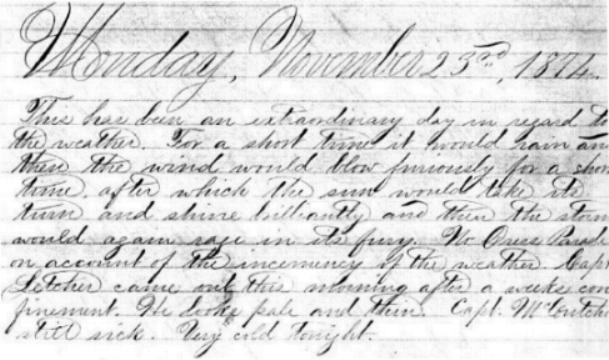 Monday, November 23rd, 1874.
This has been an extraordinary day in regard to
the weather. For a short time it would rain an
then the wind would blow furiously for a shor
time, after which the sun would take its
turn and shine brilliantly and then the storm
would again rage in its fury. No Dress Parade
on account of the incemency of the weather. Capt
Letcher came out this morning after a weeks con
finement. He looks pale and thin. Capt. McCutch
still sick. Very cold tonight.